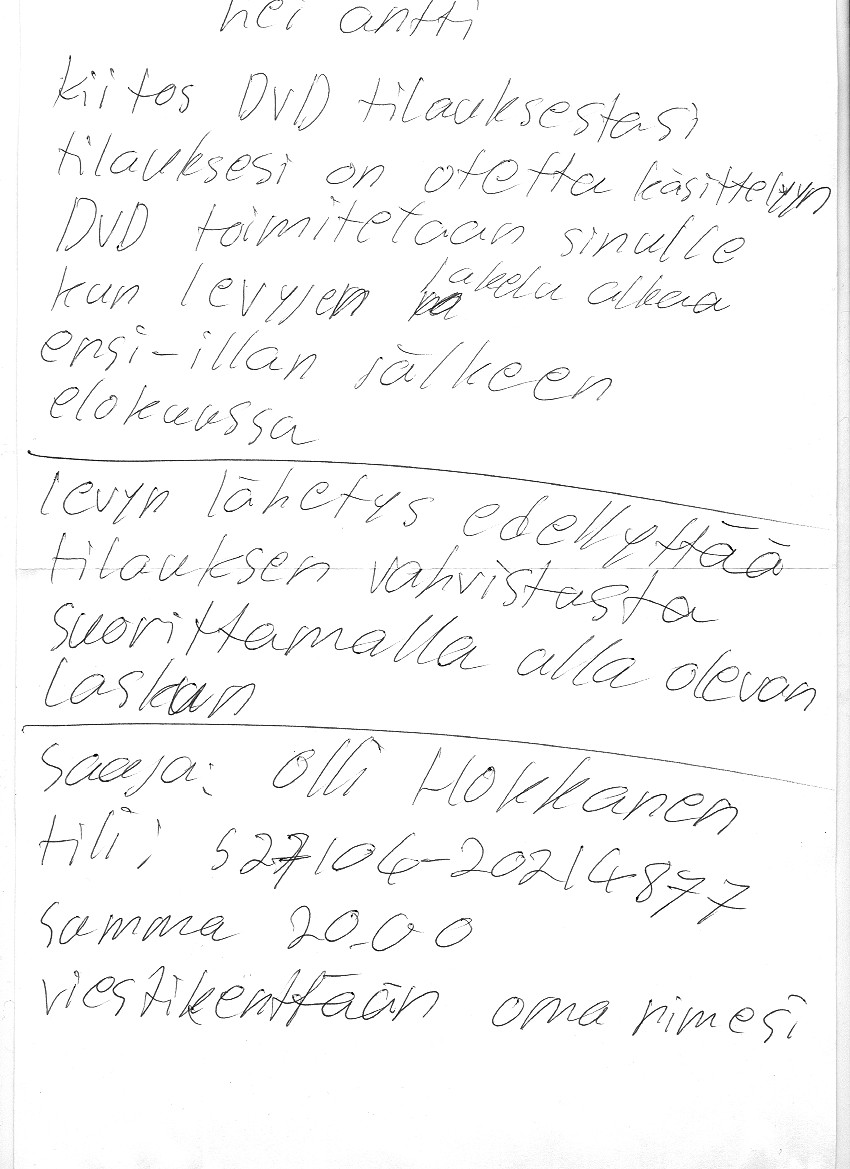 hei antti
kiitos DVD tilauksestasi
tilauksesi on otettu käsittelyyn
DVD toimitetaan sinulle
kun levyjen jakelu alkaa
ensi-illan jälkeen
elokuussa
levyn lähetys edellyttää
tilauksen vahvistusta
suorittamalla alla olevan
laskun
saaja: olli Hokkanen
tili: 527104-20214877
summa 20.00
viestikenttään oma nimesi